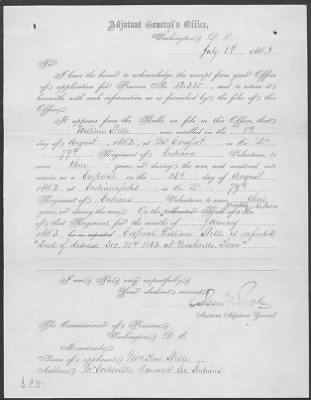 Adjutant General's Office,
Washington, D. C.
July 1st, 1863.
Sir:
I have the honor to acknowledge the receipt from your Office
of application for Pension No. and to return it
herewith, with such information as is furnished by the files of this
Office.
It appears from the Rolls on file in this Office, that
William was enrolled on the
day of August, 1862, at Mt Comfort, in Co. "D"
79th Regiment of Indiana Volunteers, to
serve three years, or during the war, and mustered into
service as a Corporal on the day of August,
1862, at Indianapolis, in Co. "D" 79th
Regiment of Indiana Volunteers, to serve three
years, or during the war. On the Muster Roll of Co.
of that Regiment, for the months of January
1863, he is reported Corporal William reported
"Died of disease Dec. 21st 1862 at Nashville, Tenn"
I am, Sir, very respectfully,
Your obedient servant,
Assistant Adjutant General
The Commissioner of Pensions,
Washington, D. C.
Memoranda:
Name of applicant, Mrs
Address, McCordsville, Hancock Co Indiana